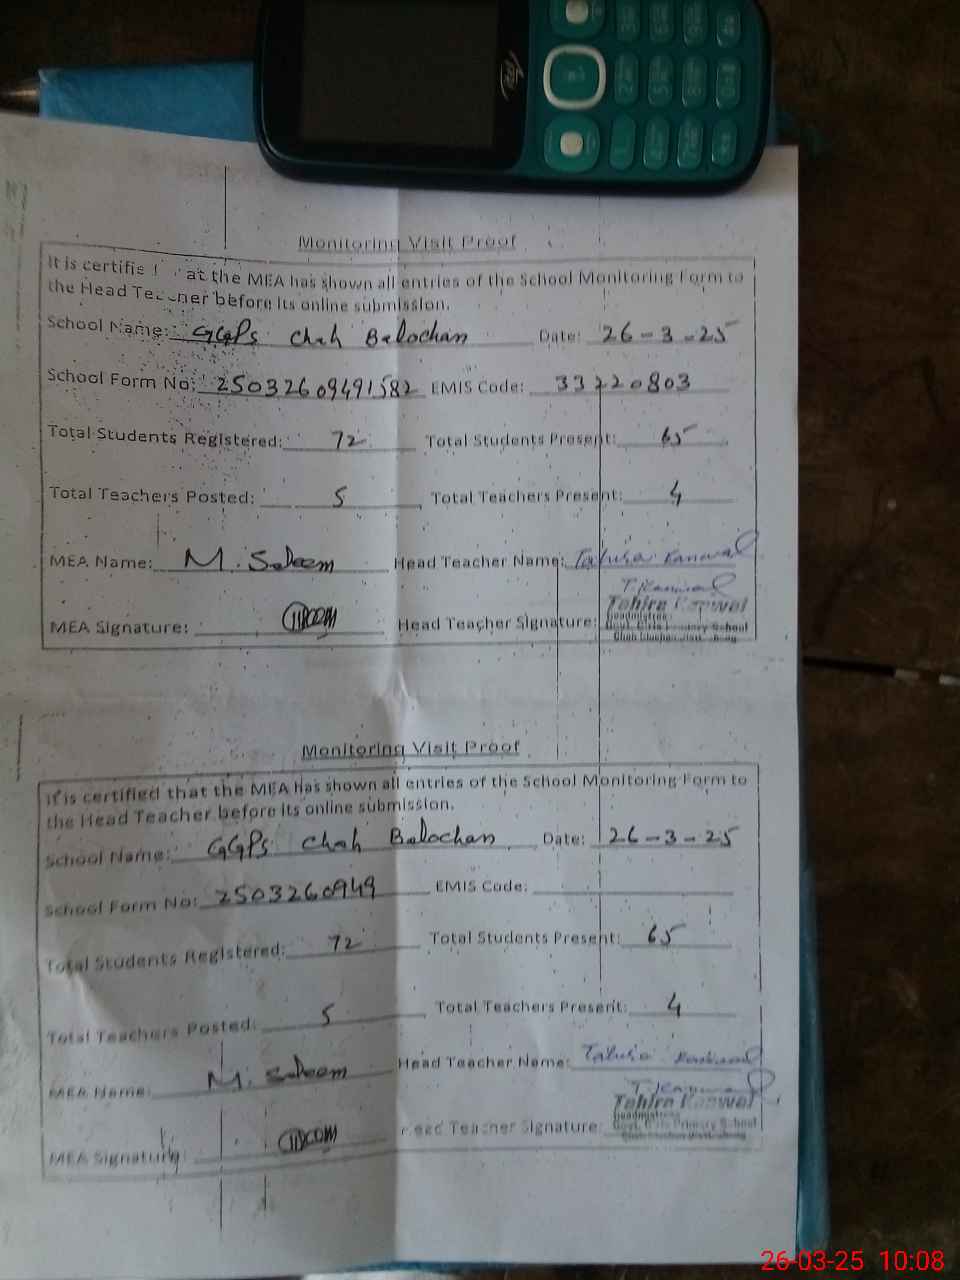 itel
Monitoring Visit Proof
It is certifie at the MEA has shown all entries of the School Monitoring Form to
the Head Teacher before its online submission.
School Name: GGPS Chah Balochan Date: 26-3-25
School Form No: 25032609491582 EMIS Code: 33220803
Total Students Registered: 72 Total Students Present: 65
Total Teachers Posted: 5 Total Teachers Present: 4
MEA Name: M. Saleem Head Teacher Name: Tahira Kanwal
T. Kanwal
MEA Signature: Head Teacher Signature: Tahira Kanwal
Headmistress
Govt. Girls Primary School
Monitoring Visit Proof
It is certified that the MEA has shown all entries of the School Monitoring Form to
the Head Teacher before its online submission.
School Name: GGPS Chah Balochan Date: 26-3-25
School Form No: 2503260949 EMIS Code:
Total Students Registered: 72 Total Students Present: 65
Total Teachers Posted: 5 Total Teachers Present: 4
MEA Name: M. Saleem Head Teacher Name: Tahira Kanwal
T. Kanwal
MEA Signature: Head Teacher Signature: Tahira Kanwal
Headmistress
Govt. Girls Primary School
26-03-25 10:08